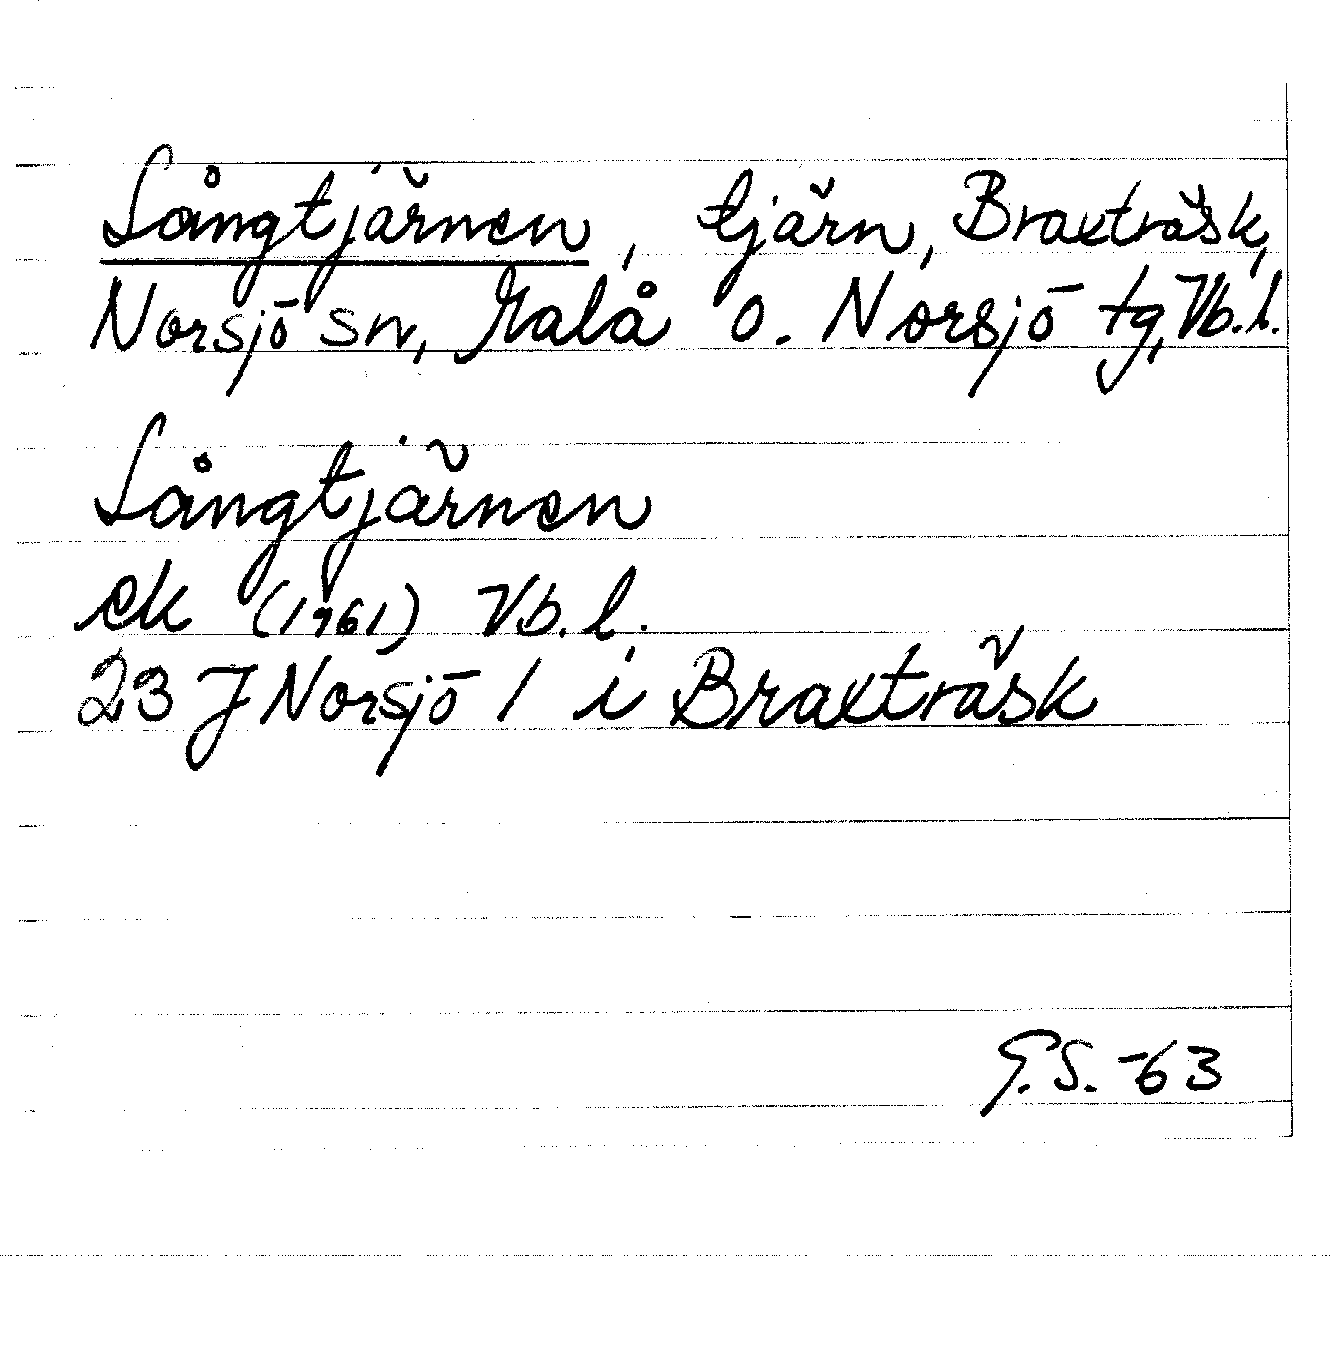 Långtjärnen, tjärn, Braxträsk,
Norsjö sn, Malå o. Norsjö tg, Vb. l.
Långtjärnen
ek (1961) Vb. l.
23 J Norsjö 1 i Braxträsk
G.S. -63